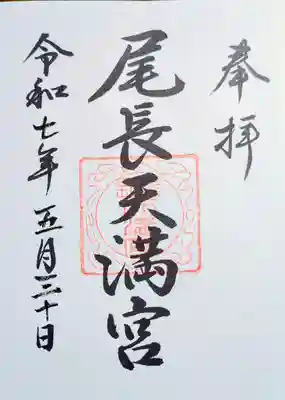 奉拝
尾長天満宮
令和七年五月三十日